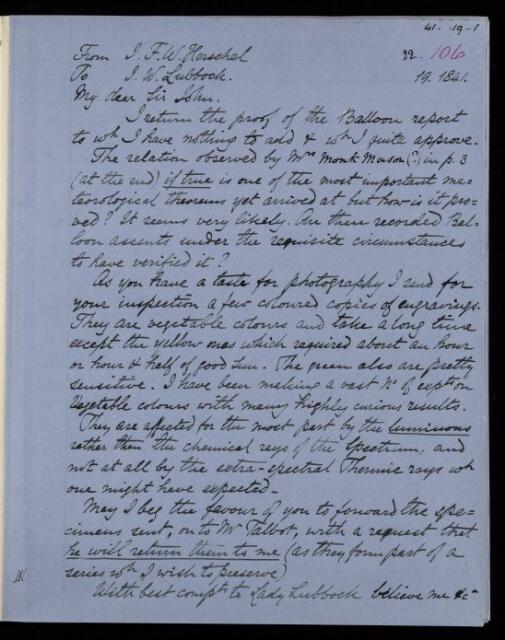 41. 19. 1
From J. F. W. Herschel
22. 106
To J. W. Lubbock.
19. 1841.
My dear Sir John.
I return the proof of the Balloon report
to wh I have nothing to add & wh I quite approve.
The relation observed by Mrs Monk Mason (?) in p. 3
(at the end) if true is one of the most important me-
teorological theorems yet arrived at but how is it pro-
ved? It seems very likely. Are there recorded Bal-
loon assents under the requisite circumstances
to have verified it?
As you have a taste for photography I send for
your inspection a few coloured copies of engravings.
They are vegetable colours and take a long time
except the yellow ones which required about an hour
or hour & half of good sun. The green also are pretty
sensitive. I have been making a vast No of expts on
Vegetable colours with many highly curious results.
They are affected for the most part by the luminous
rather than the chemical rays of the Spectrum, and
not at all by the extra-spectral Thermic rays wh
one might have expected –
May I beg the favour of you to forward the spe-
cimens sent, on to Mr Talbot, with a request that
he will return them to me (as they form part of a
series wh I wish to preserve)
With best compts to Lady Lubbock believe me &c